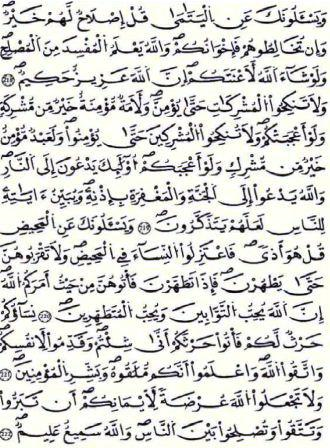 وَيَسْـَٔلُونَكَ عَنِ اِلْيَتَٰمَىٰ قُلِ اِصْلَاحٌ لَّهُمْ خَيْرٌ
وَإِن تُخَالِطُوهُمْ فَإِخْوَٰنُكُمْ وَاللَّهُ يَعْلَمُ الْمُفْسِدَ مِنَ الْمُصْلِحِ
وَلَوْ شَآءَ اَللَّهُ لَأَعْنَتَكُمْ إِنَّ اَللَّهَ عَزِيزٌ حَكِيمٌ 218
وَلَا تَنكِحُوا الْمُشْرِكَٰتِ حَتَّىٰ يُؤْمِنَّ وَلَأَمَةٌ مُّؤْمِنَةٌ خَيْرٌ مِّن مُّشْرِكَةٍ
وَلَوْ أَعْجَبَتْكُمْ وَلَا تُنكِحُوا الْمُشْرِكِينَ حَتَّىٰ يُؤْمِنُوا وَلَعَبْدٌ مُّؤْمِنٌ
خَيْرٌ مِّن مُّشْرِكٍ وَلَوْ أَعْجَبَكُمْ أُوْلَٰٓئِكَ يَدْعُونَ إِلَى النَّارِ
وَاللَّهُ يَدْعُوٓا إِلَى الْجَنَّةِ وَالْمَغْفِرَةِ بِإِذْنِهِ وَيُبَيِّنُ ءَايَٰتِهِ
لِلنَّاسِ لَعَلَّهُمْ يَتَذَكَّرُونَ 219 وَيَسْـَٔلُونَكَ عَنِ الْمَحِيضِ
قُلْ هُوَ أَذًى فَاعْتَزِلُوا النِّسَآءَ فِي الْمَحِيضِ وَلَا تَقْرَبُوهُنَّ
حَتَّىٰ يَطْهُرْنَ فَإِذَا تَطَهَّرْنَ فَأْتُوهُنَّ مِنْ حَيْثُ أَمَرَكُمُ اللَّهُ
إِنَّ اَللَّهَ يُحِبُّ التَّوَّٰبِينَ وَيُحِبُّ الْمُتَطَهِّرِينَ 220 نِسَآؤُكُمْ
حَرْثٌ لَّكُمْ فَأْتُوا حَرْثَكُمْ أَنَّىٰ شِئْتُمْ وَقَدِّمُوا لِأَنفُسِكُمْ
وَاتَّقُوا اللَّهَ وَاعْلَمُوٓا أَنَّكُم مُّلَٰقُوهُ وَبَشِّرِ الْمُؤْمِنِينَ 221
وَلَا تَجْعَلُوا اللَّهَ عُرْضَةً لِّأَيْمَٰنِكُمْ أَن تَبَرُّوا
وَتَتَّقُوا وَتُصْلِحُوا بَيْنَ النَّاسِ وَاللَّهُ سَمِيعٌ عَلِيمٌ 222